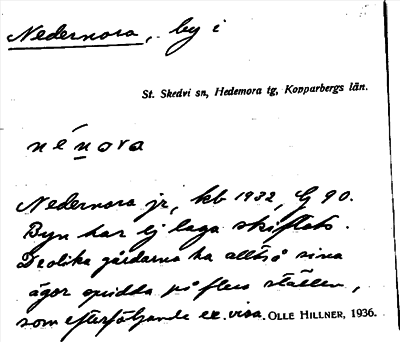 Nedernora, by i
St. Skedvi sn, Hedemora tg, Kopparbergs län.
nén̲ora
Nedernora jr, kb 1932, G 90.
Byn har ej laga skiftats.
De olika gårdarna ha alltså sina
ägor spridda på flera ställen,
som efterföljande ex. visa. OLLE HILLNER, 1936.